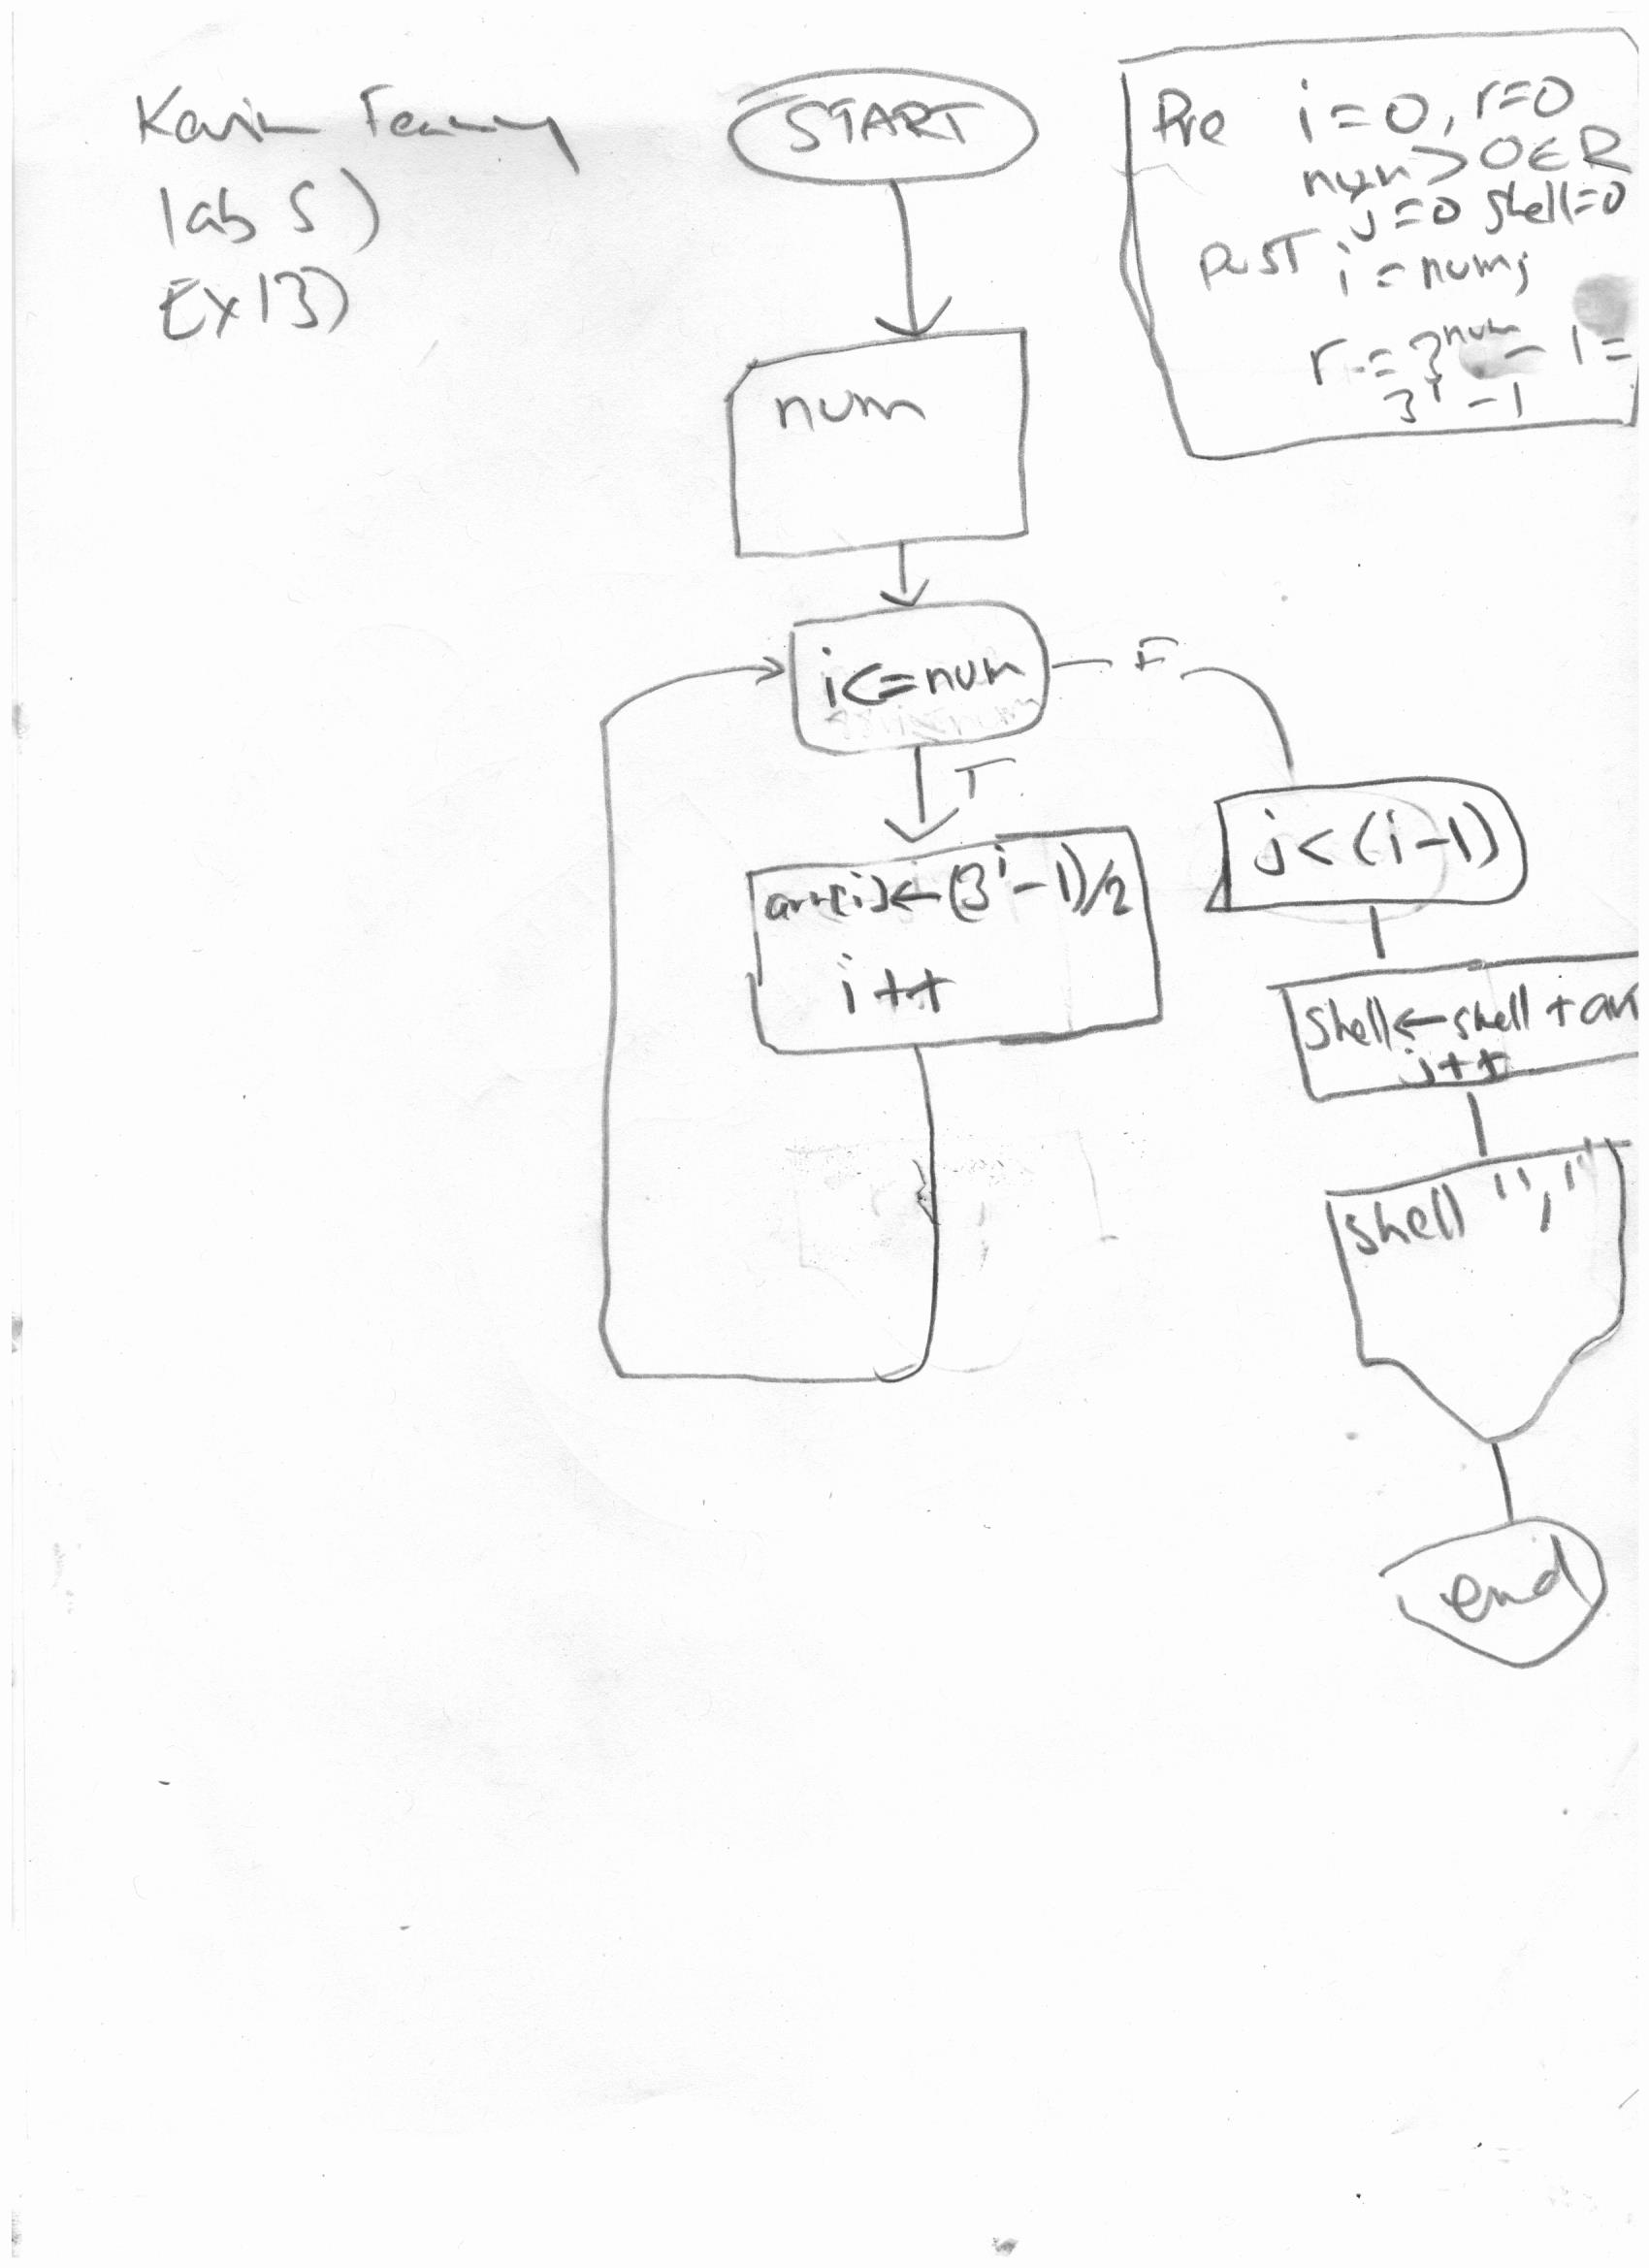 lab 5)
Ex13)
START
Pre i=0, r=0
num>0∈R
j=0 shell=0
post i=num;
r=3^num-1=
3^i-1
num
i<=num
F
T
arr[i]←(3^i-1)/2
i++
j<(i-1)
shell←shell+arr
j++
shell ","
end